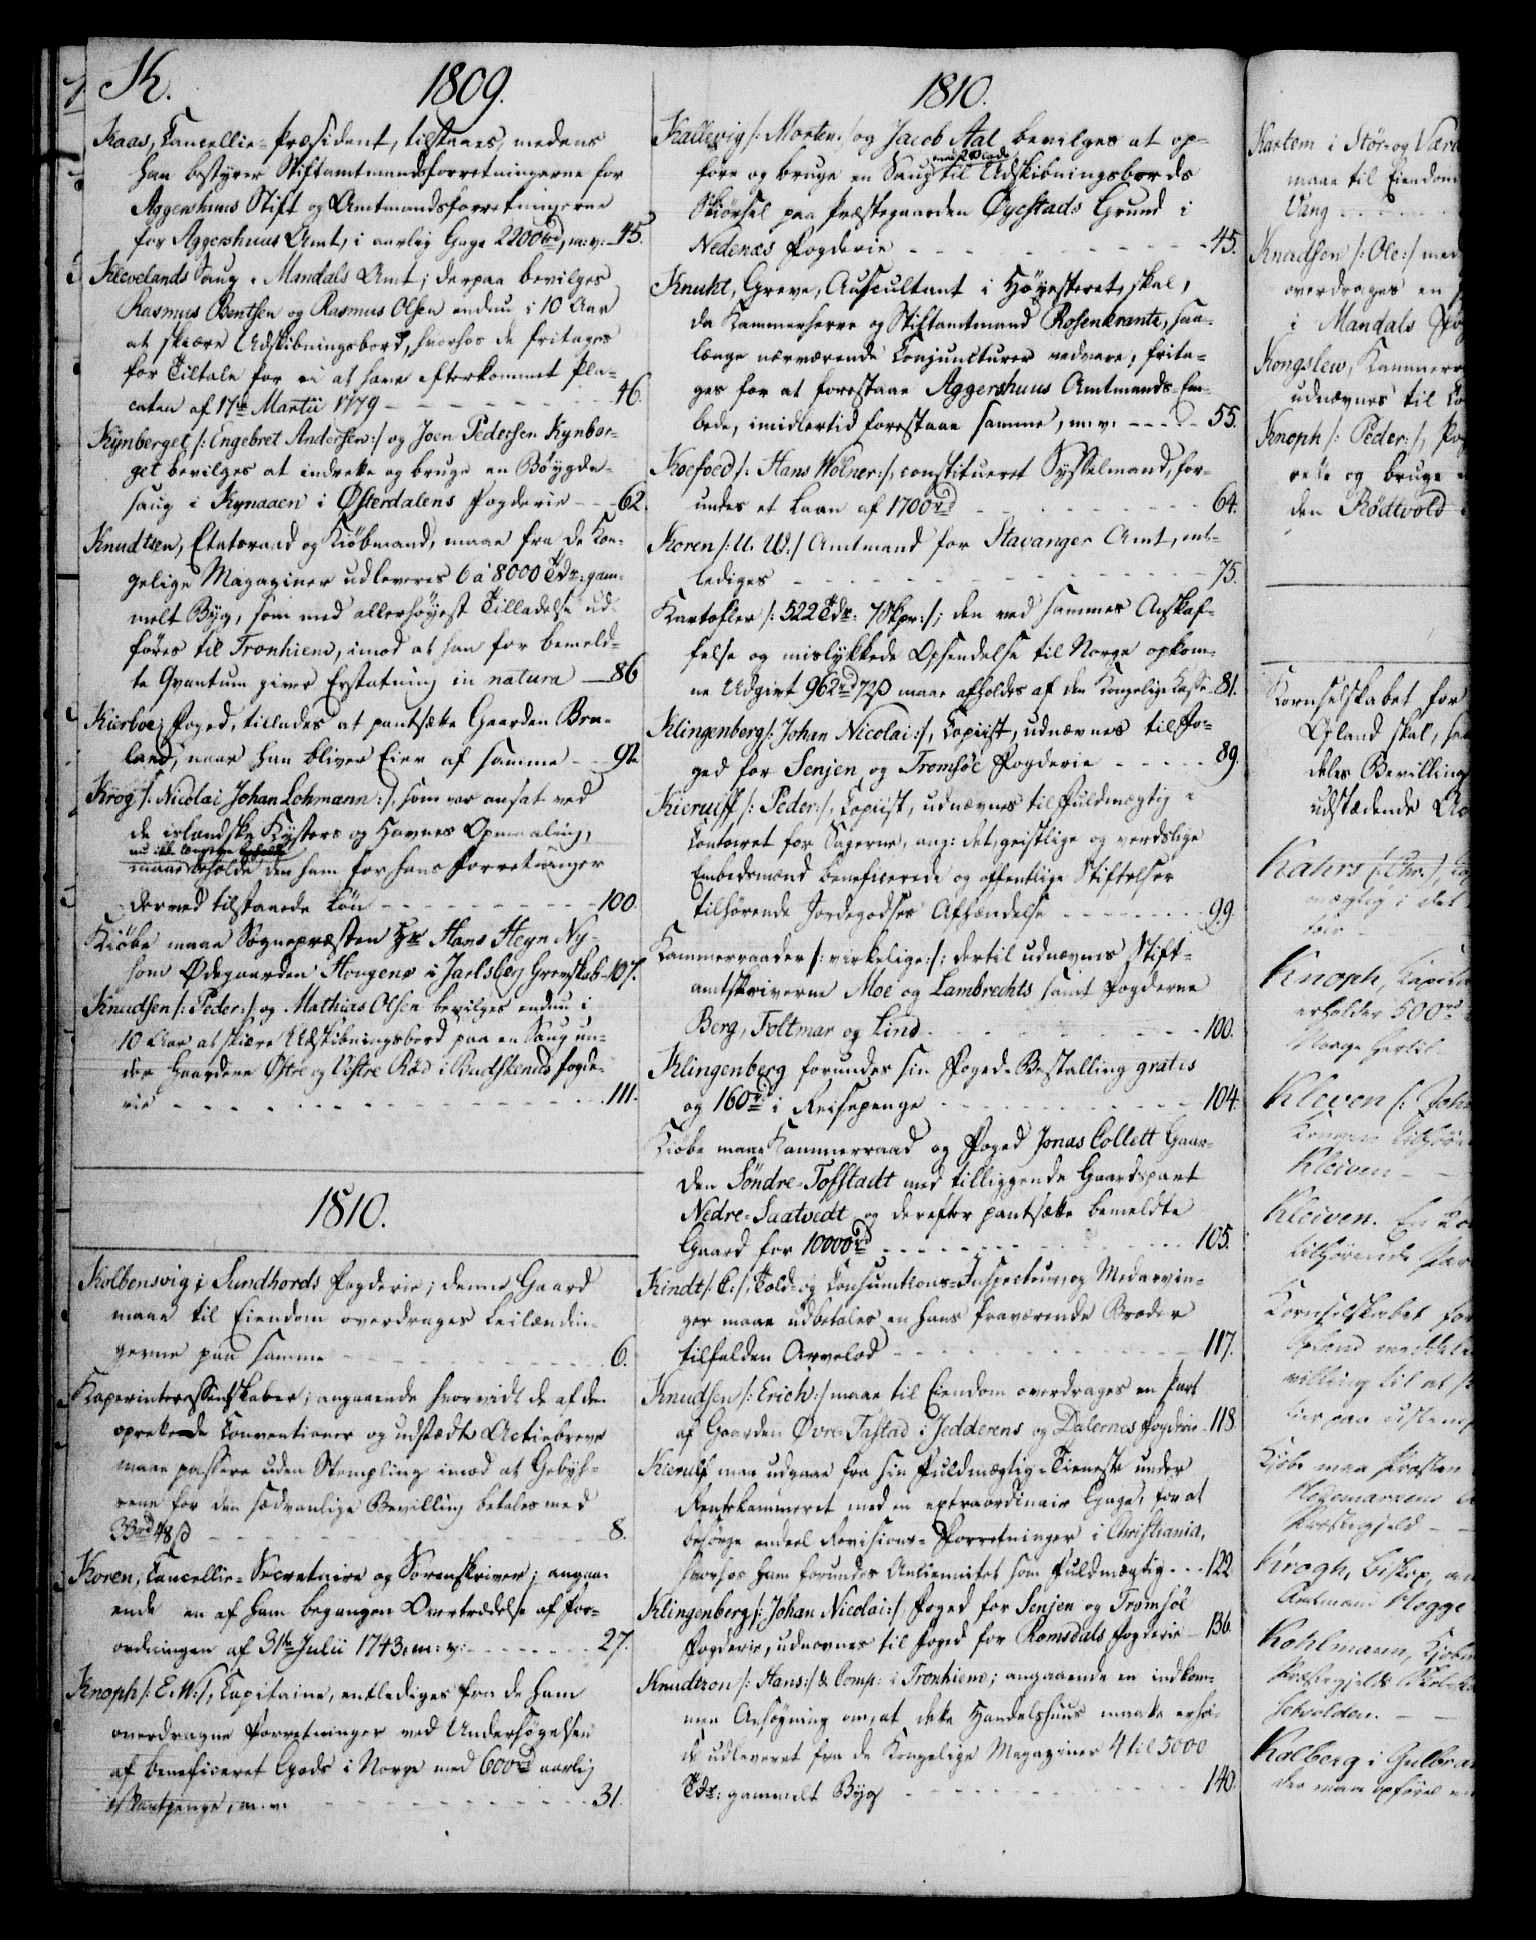 K.
1809.
Kaas, Cancellie-Præsident, tilstaaes, medens
han bestyrer Stiftamtmandsforretningerne for
Aggershuus Stift og Amtmandsforretningerne
for Aggershuus Amt, i aarlig Gage 2200 rd, m: v: 45.
Klevelands Saug i Mandals Amt; derpaa bevilges
Rasmus Bentsen og Rasmus Olsen endnu i 10 Aar
at skiære Udskibningsbord, hvorhos de fritages
for Tiltale for ei at have efterkommet Pla-
caten af 17de Martii 1779 - - - 46.
Kynberget /: Engebret Andersen :/ og Joen Pedersen Kynber-
get bevilges at indrette og bruge en Bøygde-
saug i Kynaaen i Østerdalens Fogderie - - 62.
Knudtsen, Etatsraad og Kiøbmand, maae fra de Kon-
gelige Magaziner udleveres 6 à 8000 Tdr: gam-
melt Byg, som med allerhøyest Tilladelse ud-
føres til Tronhiem, imod at han for bemeld-
te Qvantum giver Erstatning in natura - 86
Kierboe, Foged, tillades at pantsætte Gaarden Bra-
land, naar han bliver Eier af samme - - 92.
Krog /: Nicolai Johan Lohmann :/, som var ansat ved
de islandske Kysters og Havnes Opmaaling,
maae beholde den ham for hans Forretninger
derved tilstaaede Løn - - - 100.
Kiøbe maae Sognepræsten Hr Hans Heyn Ny-
som Ødegaarden Hougene i Jarlsberg Grevskab - 107.
Knudsen /: Peder :/ og Mathias Olsen bevilges endnu i
10 Aar at skiære Udskibningsbord paa en Saug un-
der Gaardene Østre og Vestre Ræd i Budskeruds Fogde-
rie - - - 111.
1810.
Kolbensvig i Sundhords Fogderie; denne Gaard
maae til Eiendom overdrages Leilændin-
gerne paa samme - - - 6.
Kaperinteressentskaber; angaaende hvorvidt de af dem
oprettede Conventioner og udstædte Actiebreve
maae passere uden Stempling imod at Gebyh-
rene for den sædvanlige Bevilling betales med
33 rd 48 ß - - - 8.
Koren, Cancellie-Secretaire og Sorenskriver; angaa-
ende en af ham begangen Overtrædelse af For-
ordningen af 31te Julii 1743, m: v: - - - 27.
Knoph /: E. W :/, Capitaine, entlediges fra de ham
overdragne Forretninger ved Undersøgelsen
af beneficeret Gods i Norge med 600 rd aarlig
i Vartpenge, m. v. - - - 31.
1810.
Kallevig /: Morten :/ og Jacob Aal bevilges at op-
med 2 Blade
føre og bruge en Saug til Udskibningsbords
Skiørsel paa Præstegaarden Øyestads Grund i
Nedenæs Fogderie - - - 45.
Knuht, Greve, Auscultant i Høyesteret, skal,
da Kammerherre og Stiftamtmand Rosenkrantz, saa-
længe nærværende Conjuncturer vedvare, frita-
ges for at forestaae Aggershuus Amtmands-Em-
bede, imidlertid forestaae samme, m. v. - - - 55.
Koefoed /: Hans Wolner :/, constitueret Sysselmand, for-
undes et Laan af 1700 rd - - - 64.
Koren /: U. W. :/ Amtmand for Stavanger Amt, ent-
lediges - - - 75.
Kartofler /: 522 Tdr: 7 Skpr: /; den ved sammes Anskaf-
felse og mislykkede Opsendelse til Norge opkom-
ne Udgivt 962 rd 72 ß maae afholdes af den Kongelige Casse 81.
Klingenberg /: Johan Nicolai :/, Copiist, udnævnes til Fo-
ged for Senjen og Tromsøe Fogderie - - - 89.
Kierulff /: Peder :/, Copiist, udnævnes til Fuldmægtig i
Contoiret for Sagerne, ang: det, geistlige og verdslige
Embedsmænd beneficerede og offentlige Stiftelser
tilhørende Jordegodses Afhændelse - - - 99.
Kammerraader /: virkelige :/: dertil udnævnes Stift-
amtskriverne Moe og Lambrechts samt Fogderne
Berg, Foltmar og Lind - - - 100.
Klingenberg forundes sin Foged-Bestalling gratis
og 160 rd i Reisepenge - - - 104.
Kiøbe maae Kammerraad og Foged Jonas Collett Gaar-
den Søndre-Tofstadt med tilliggende Gaardspart
Nedre-Saatvedt og derefter pantsætte bemeldte
Gaard for 10000 rd - - - 105.
Kindt /: C :/, Told- og Consumtions-Inspecteur, og Medarvin-
ger maae udbetales en hans fraværende Broder
tilfalden Arvelod - - - 117.
Knudsen /: Erich :/ maae til Eiendom overdrages en Part
af Gaarden Øvre-Tastad i Jedderens og Dalernes Fogderie - 118.
Kierulf maa udgaae fra sin Fuldmægtig-Tieneste under
Rentekammeret med en extraordinair Gage, for at
besørge endeel Revisions-Forretninger i Christiania,
hvorhos ham forundes Anciennitet som Fuldmægtig - - 122.
Klingenberg /: Johan Nicolai :/, Foged for Senjen og Tromsøe
Fogderie, udnævnes til Foged for Romsdals Fogderie - 136.
Knudtzon /: Hans :/ & Comp: i Tronhiem; angaaende en indkom-
men Ansøgning om, at dette Handelshuus maatte erhol-
de udleveret fra de Kongelige Magaziner 4 til 5000
Tdr: gammelt Byg - - - 140.
Kartem i Stør- og Værd
maae til Eiendom
Vang - - -
Knudsen /: Ole :/ med
overdrages en
i Mandals Fog
Kongslew, Kammerr
udnævnes til
Knoph /: Peder :/, Fog
rette og bruge
den Rødtvold
Kornselskabet for
Opland skal, 
deles Bevilling
udstædende
Kahrs /: Chr: /,
mægtig i det
Knoph, Capitai
erholder 500 rd
Norge hertil
Kleven /: John
Kleiven - -
Kleiven. En
tilhørende Par
Kornselskabet for
Opland meddeles
villing til at
Kiøbe maa Præsten
Præstegield - -
Krogh, Biskop,
Amtmand Hegge
Kohlmann, Kiøbm
Præstegields
Kolberg i Gulbran
der maa opføres en